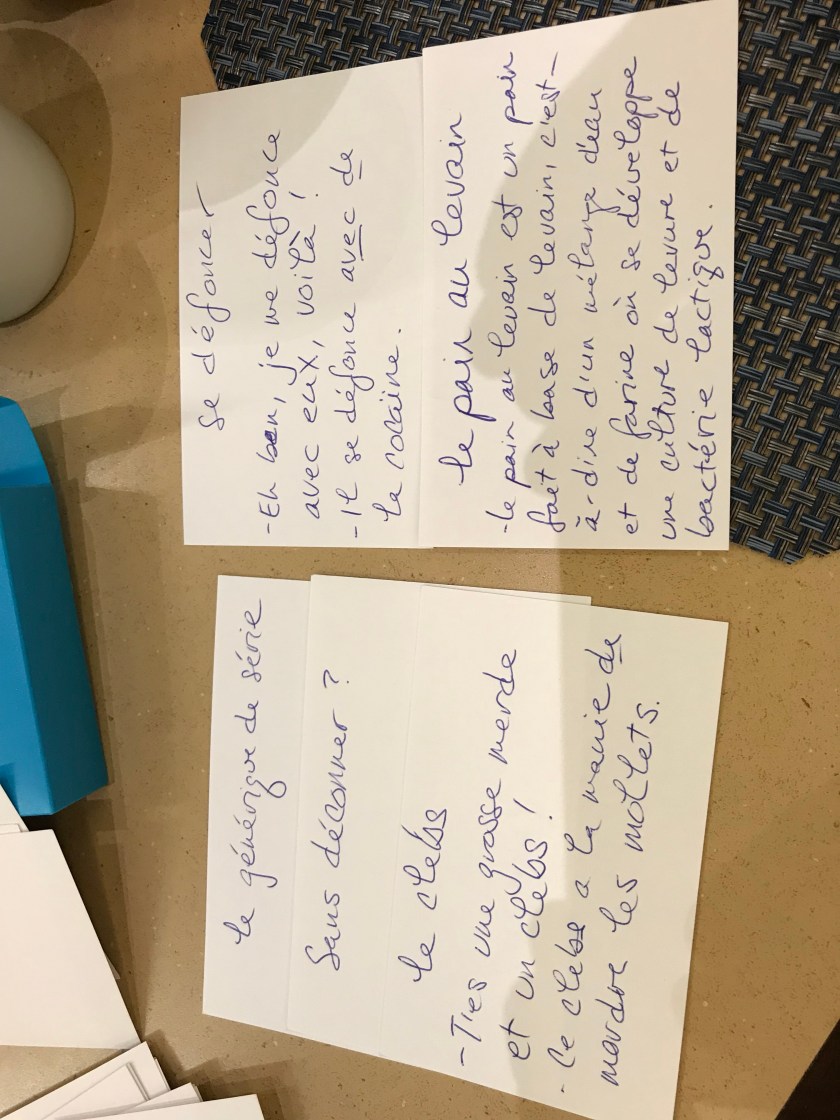 se défoncer
- Eh ben, je me défonce
avec eux, voilà !
- Il se défonce avec de
la cocaïne.
le pain au levain
- le pain au levain est un pain
fait à base de levain, c'est-
à-dire d'un mélange d'eau
et de farine où se développe
une culture de levure et de
bactérie lactique.
le générique de série
Sans déconner ?
le clebs
- T'es une grosse merde
et un clebs !
- Ce clebs a la manie de
mordre les mollets.